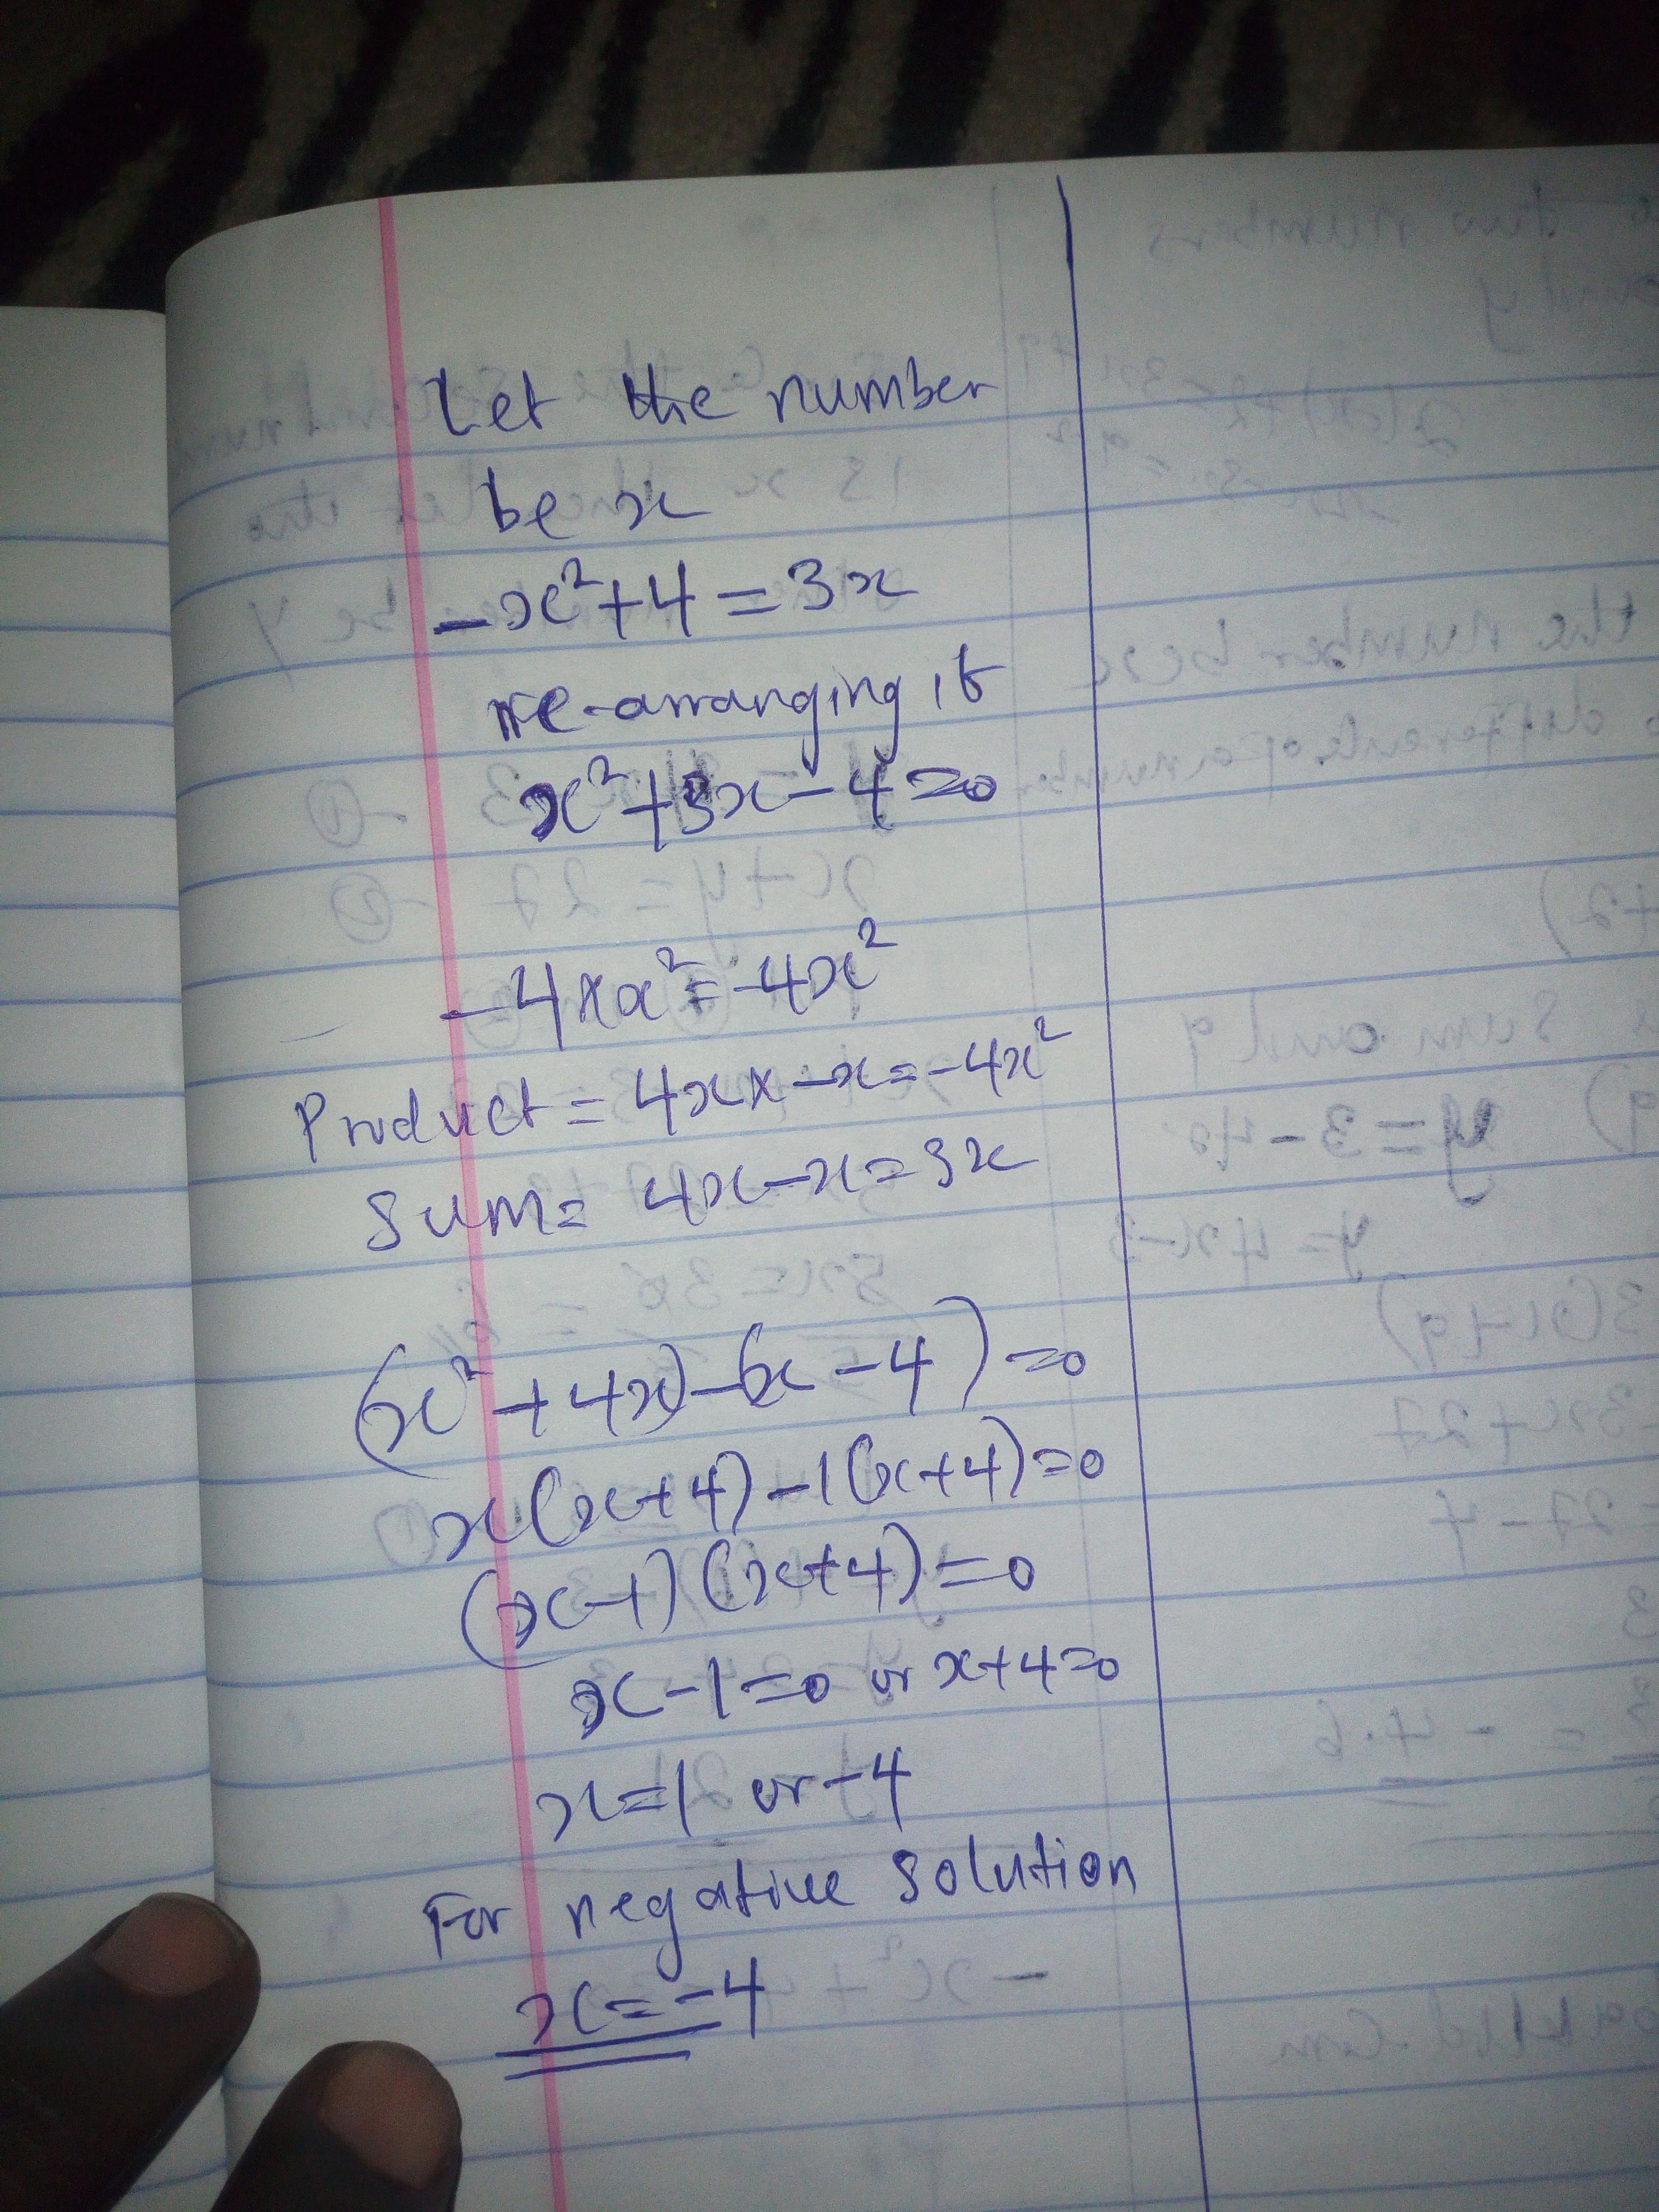 Let the number
be x
-x²+4=3x
re-arranging it
x²+3x-4=0
-4xx²=-4x²
Product=4x×-x=-4x²
Sum=4x-x=3x
(x²+4x)-(x-4)=0
x(x+4)-1(x+4)=0
(x-1)(x+4)=0
x-1=0 or x+4=0
x=1 or -4
For negative solution
x=-4